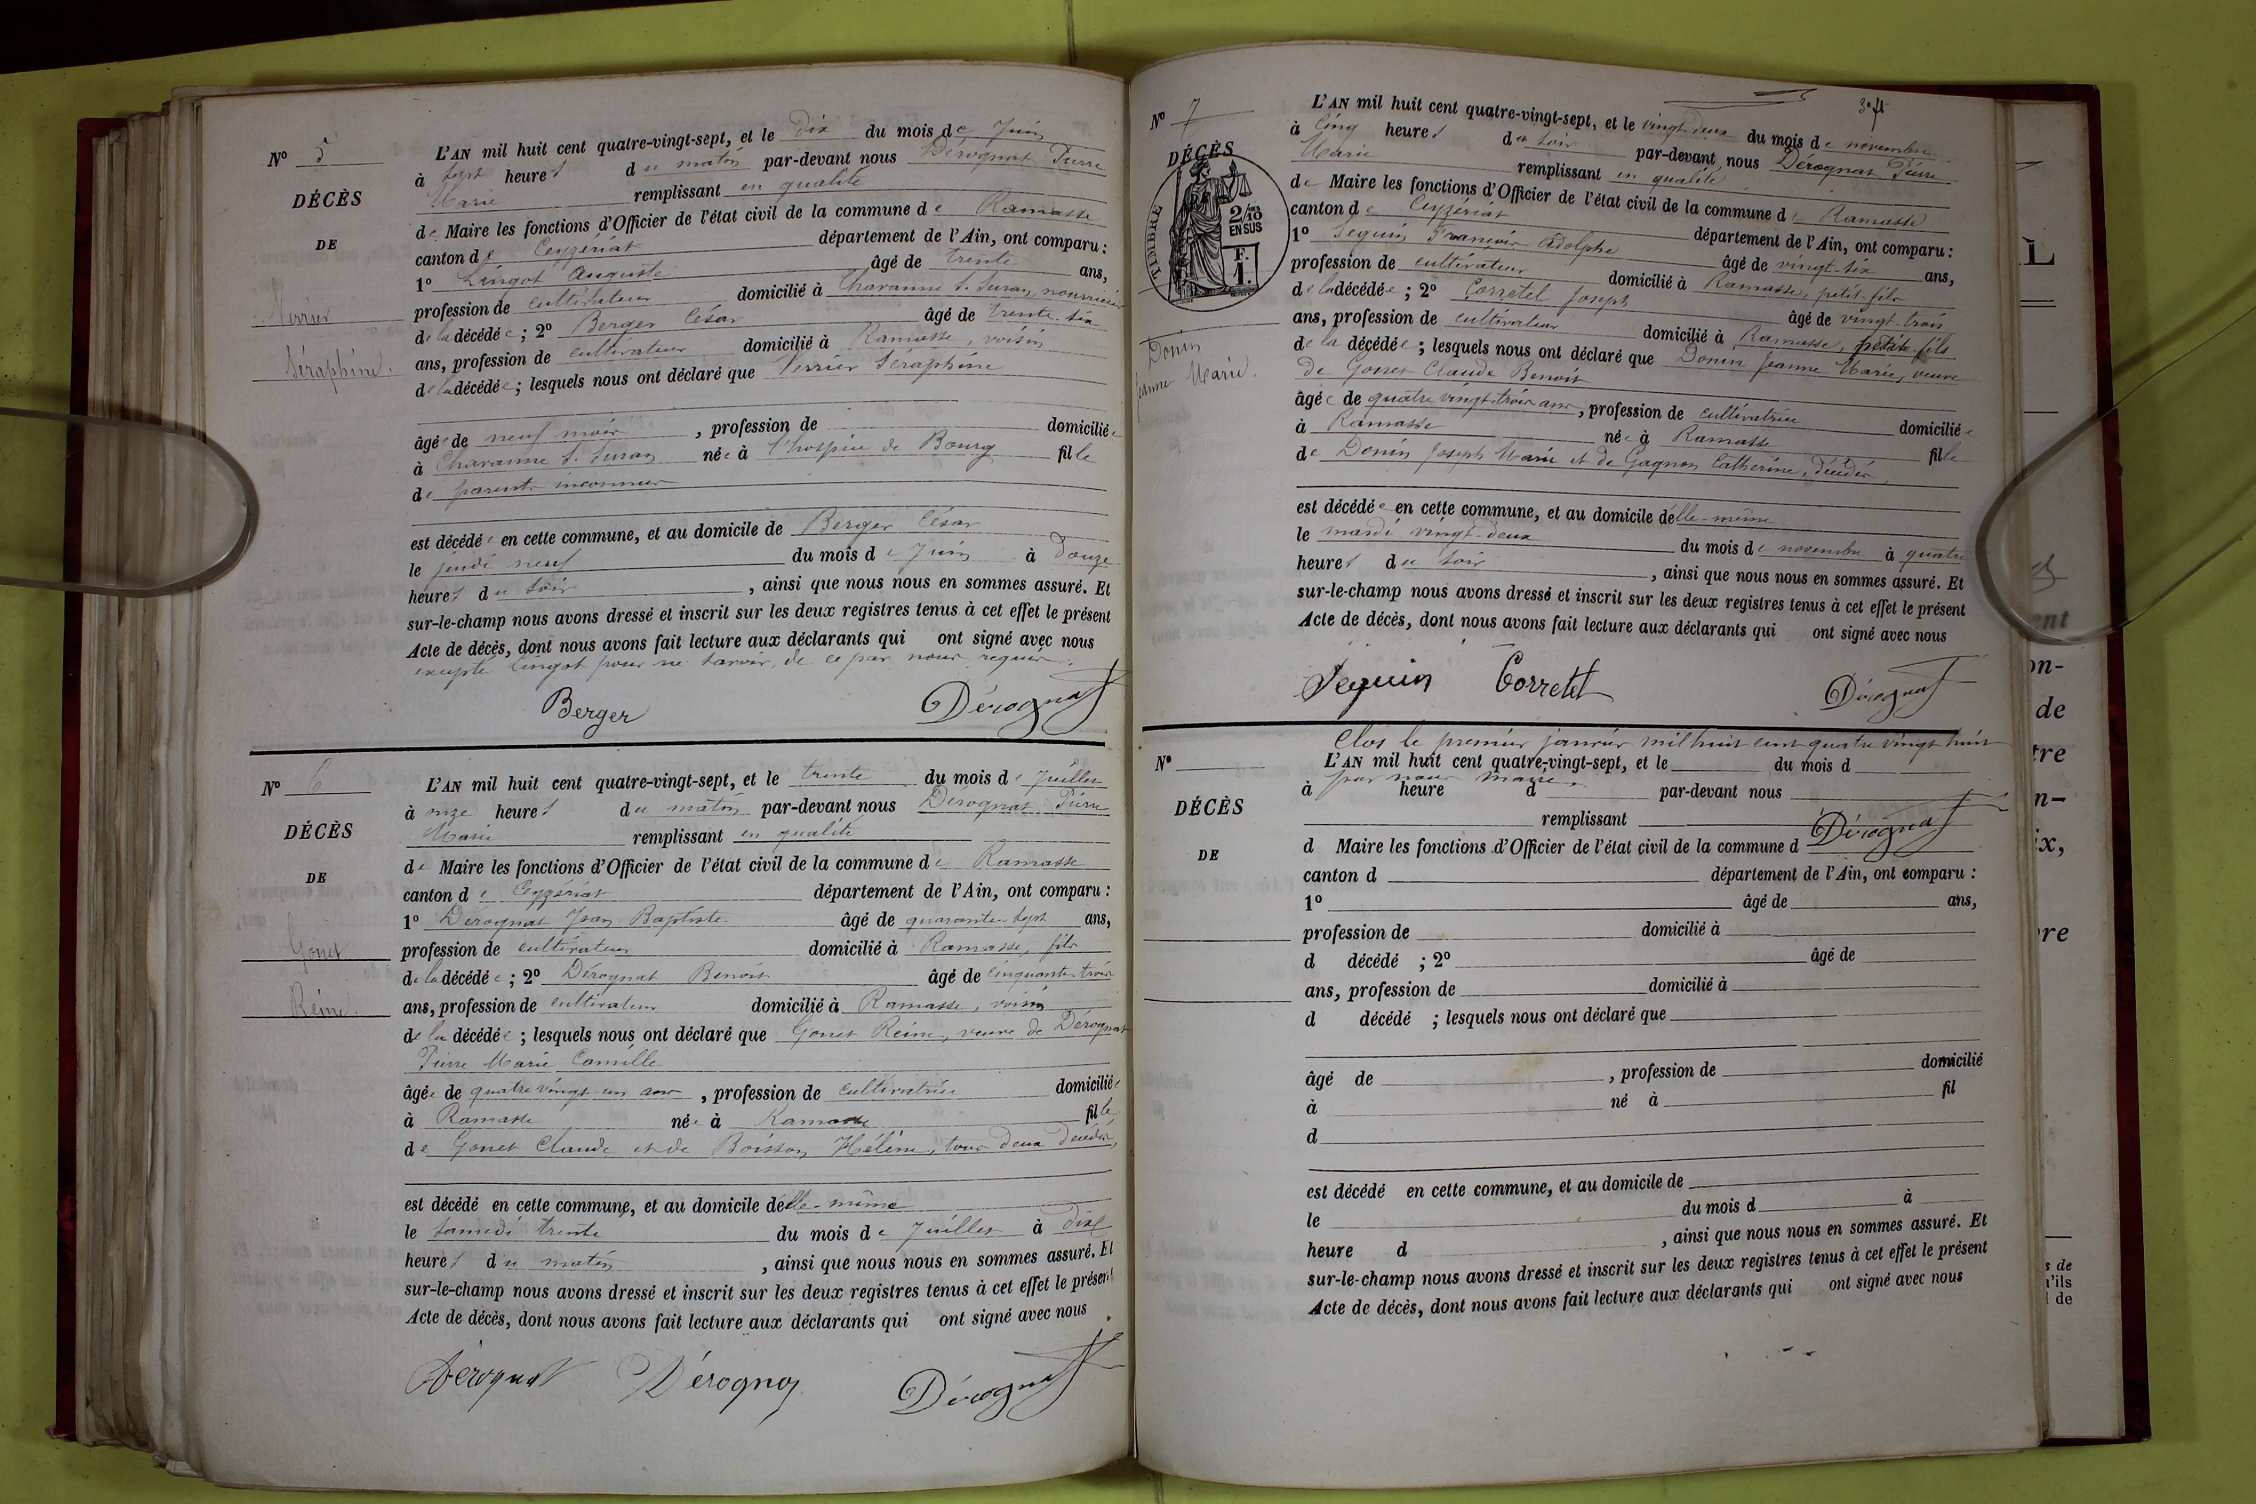 N° 5
DÉCÈS
DE
Verrier
Séraphine.
L'AN mil huit cent quatre-vingt-sept, et le dix du mois de Juin
à sept heures du matin par-devant nous Dérognat Pierre
Marie remplissant en qualité
de Maire les fonctions d'Officier de l'état civil de la commune de Ramasse
canton de Ceyzériat département de l'Ain, ont comparu :
1° Lingot Auguste âgé de trente ans,
profession de cultivateur domicilié à Chavanne s. Suran, nourricier
de la décédée ; 2° Berger César âgé de trente six
ans, profession de cultivateur domicilié à Ramasse, voisin
de la décédée ; lesquels nous ont déclaré que Verrier Séraphine
âgée de neuf mois , profession de domiciliée
à Chavanne s. Suran née à l'hospice de Bourg fille
de parents inconnus
est décédée en cette commune, et au domicile de Berger César
le jeudi neuf du mois de Juin à douze
heures du soir , ainsi que nous nous en sommes assuré. Et
sur-le-champ nous avons dressé et inscrit sur les deux registres tenus à cet effet le présent
Acte de décès, dont nous avons fait lecture aux déclarants qui ont signé avec nous
excepté Lingot pour ne savoir, de ce par nous requis.
Berger Dérognat
N° 6
DÉCÈS
DE
Gonet
Reine.
L'AN mil huit cent quatre-vingt-sept, et le trente du mois de Juillet
à onze heures du matin par-devant nous Dérognat Pierre
Marie remplissant en qualité
de Maire les fonctions d'Officier de l'état civil de la commune de Ramasse
canton de Ceyzériat département de l'Ain, ont comparu :
1° Dérognat Jean Baptiste âgé de quarante sept ans,
profession de cultivateur domicilié à Ramasse, fils
de la décédée ; 2° Dérognat Benoit âgé de cinquante trois
ans, profession de cultivateur domicilié à Ramasse, voisin
de la décédée ; lesquels nous ont déclaré que Gonet Reine, veuve de Dérognat
Pierre Marie Camille
âgée de quatre vingt un ans , profession de cultivatrice domiciliée
à Ramasse née à Ramasse fille
de Gonet Claude et de Boisson Hélène, tous deux décédés,
est décédé en cette commune, et au domicile d'elle-même
le samedi trente du mois de Juillet à dix
heures du matin , ainsi que nous nous en sommes assuré. Et
sur-le-champ nous avons dressé et inscrit sur les deux registres tenus à cet effet le présent
Acte de décès, dont nous avons fait lecture aux déclarants qui ont signé avec nous .
Dérognat Dérognat Dérognat
N° 7
DÉCÈS
TIMBRE
2/10 EN SUS
F. 1.
Donin
Jeanne Marie.
L'AN mil huit cent quatre-vingt-sept, et le vingt-deux du mois de novembre
à cinq heures du soir par-devant nous Dérognat Pierre
Marie remplissant en qualité
de Maire les fonctions d'Officier de l'état civil de la commune de Ramasse
canton de Ceyzériat département de l'Ain, ont comparu :
1° Seguin François Adolphe âgé de vingt-six ans,
profession de cultivateur domicilié à Ramasse, petit-fils
de la décédée ; 2° Corretel Joseph âgé de vingt-trois
ans, profession de cultivateur domicilié à Ramasse, petit fils
de la décédée ; lesquels nous ont déclaré que Donin Jeanne Marie, veuve
de Gonet Claude Benoit
âgée de quatre vingt-trois ans, profession de cultivatrice domiciliée
à Ramasse née à Ramasse fille
de Donin Joseph Marie et de Gagnon Catherine, décédés,
est décédée en cette commune, et au domicile d'elle-même
le mardi vingt-deux du mois de novembre à quatre
heures du soir , ainsi que nous nous en sommes assuré. Et
sur-le-champ nous avons dressé et inscrit sur les deux registres tenus à cet effet le présent
Acte de décès, dont nous avons fait lecture aux déclarants qui ont signé avec nous
Seguin Corretel Dérognat
Clos le premier janvier mil huit cent quatre vingt huit
par nous Maire.
Dérognat
N°
DÉCÈS
DE
L'AN mil huit cent quatre-vingt-sept, et le du mois d
à heure d par-devant nous
remplissant
d Maire les fonctions d'Officier de l'état civil de la commune d
canton d département de l'Ain, ont comparu :
1° âgé de ans,
profession de domicilié à
d décédé ; 2° âgé de
ans, profession de domicilié à
d décédé ; lesquels nous ont déclaré que
âgé de , profession de domicilié
à né à fil
d
est décédé en cette commune, et au domicile de
le du mois d à
heure d , ainsi que nous nous en sommes assuré. Et
sur-le-champ nous avons dressé et inscrit sur les deux registres tenus à cet effet le présent
Acte de décès, dont nous avons fait lecture aux déclarants qui ont signé avec nous